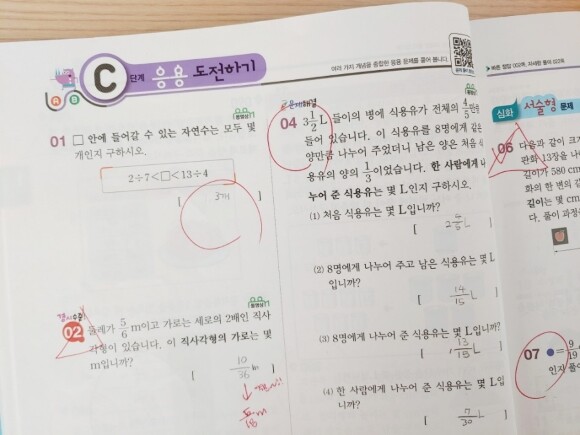 C 단계 응용 도전하기
여러 가지 개념을 종합한 응용 문제를 풀어 봅니다.
A
B
01 □ 안에 들어갈 수 있는 자연수는 모두 몇
개인지 구하시오.
2÷7<□<13÷4
[ 3개 ]
02 둘레가 5/6 m이고 가로는 세로의 2배인 직사
각형이 있습니다. 이 직사각형의 가로는 몇
m입니까?
[ 10/36 m
5/18 m
04 3 1/2 L 들이의 병에 식용유가 전체의 4/5만큼
들어 있습니다. 이 식용유를 8명에게 같은
양만큼 나누어 주었더니 남은 양은 처음 식
용유의 양의 1/3이었습니다. 한 사람에게 나
누어 준 식용유는 몇 L인지 구하시오.
(1) 처음 식용유는 몇 L입니까?
[ 2 4/5 L ]
(2) 8명에게 나누어 주고 남은 식용유는 몇 L
입니까?
[ 14/15 L ]
(3) 8명에게 나누어 준 식용유는 몇 L입니까?
[ 13/15 L ]
(4) 한 사람에게 나누어 준 식용유는 몇 L입
니까?
[ 7/30 L ]
심화 서술형 문제
06 다음과 같이 크기
판화 13장을 나
길이가 580 cm
화의 한 변의 길
길이는 몇 cm
다. 풀이 과정
07 ● = 9/19
인지 풀이